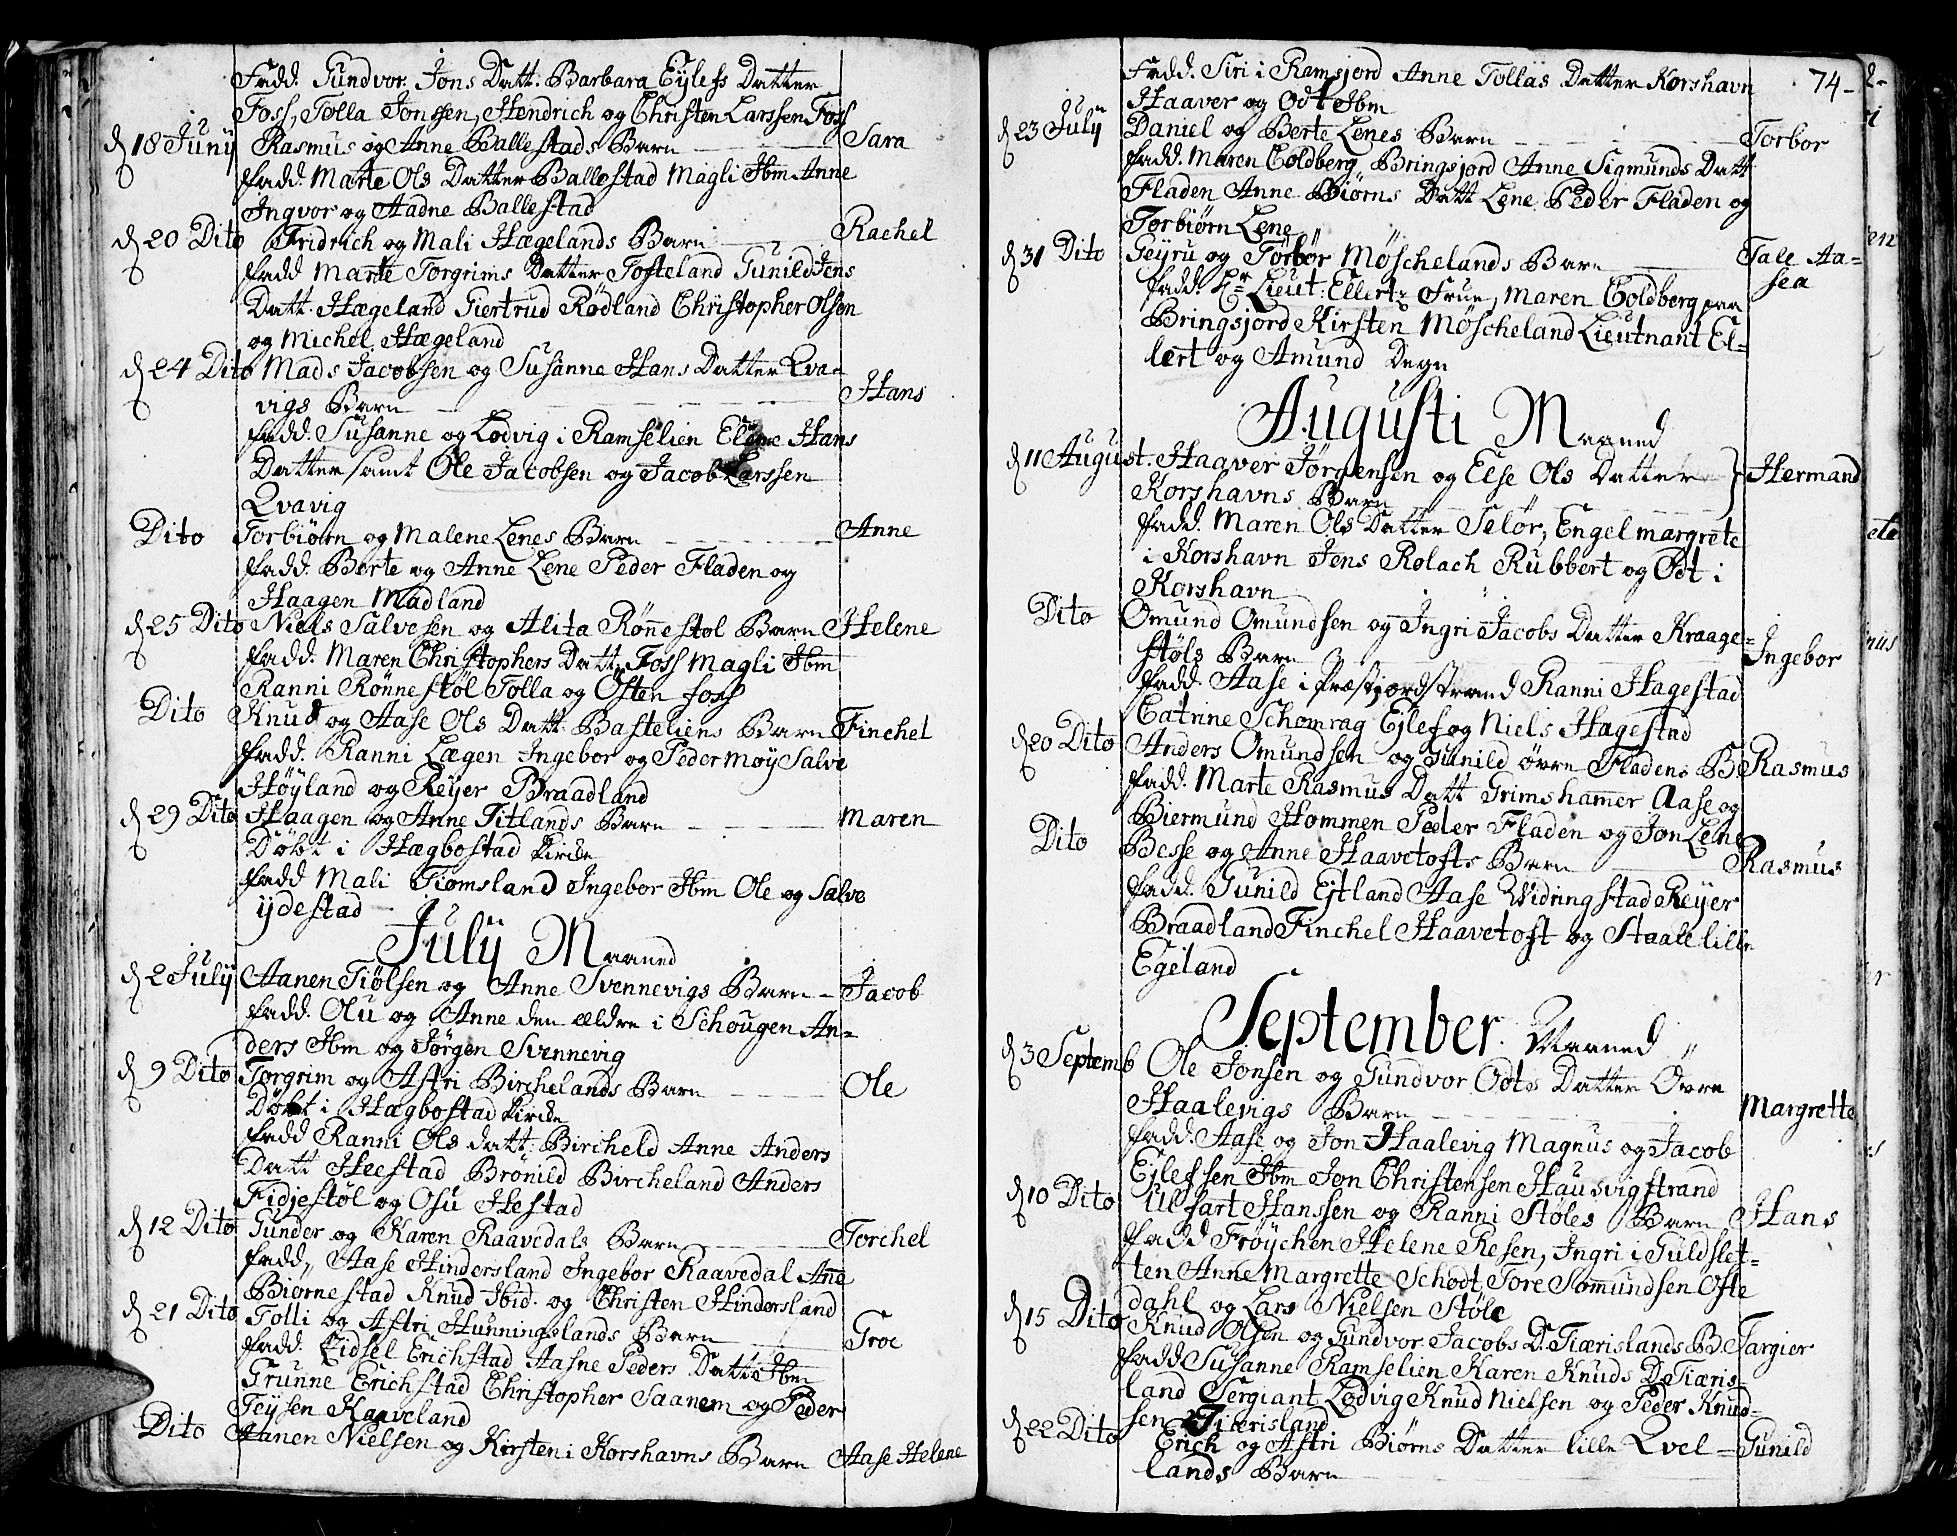 Fadd. Gundvor Jons Datt. Barbara Eylefs Datter
Foss, Tolla Jonssen, Hendrich og Christen Larssen Foss
d 18 Juny Rasmus og Anne Ballestads Barn Sara
Fadd. Marte Ols Datter Ballestad Magli Ibm Anne
Ingvor og Aadne Ballestad
d 20 Dito Fridrich og Mali Hægelands Barn Rachel
Fadd Marte Torgrims Datter Tofteland Gunild Jens
Datt. Hægeland Giertrud Rødland Christopher Olsen
og Michel Hægeland
d 24 Dito Mads Jacobsen og Susanne Hans Datter Qva-
vigs Barn Hans
Fadd. Susanne og Lodvig i Ramselien Elene Hans
Datter samt Ole Jacobsen og Jacob Larssen
Qvavig
Dito Torbiørn og Malene Lenes Barn Anne
Fadd. Berte og Anne Lene Peder Fladen og
Haagen Madland
d 25 Dito Niels Salvesen og Alita Rønnestøl Barn Helene
Fadd. Maren Christophers Datt. Foss Magli Ibm
Ranni Rønnestøl Tolla og Østen Foss
Dito Knud og Aase Ols Datt. Basteliens Barn Finchel
Fadd. Ranni Lægen Ingebor og Peder Møy Salve
Høyland og Reyer Braadland
d 29 Dito Haagen og Anne Titlands Barn Maren
Døbt i Hægbostad Kirche
Fadd Mali Tiomsland Ingebor Ibm Ole og Salve
ydestad
July Maaned
d 2 July Aanen Tiølsen og Anne Svennevigs Barn Jacob
Fadd. Olu og Anne den ældre i Schougen An-
ders Ibm og Jørgen Svennevig
d 9 Dito Torgrim og Astri Birchelands Barn Ole
Døbt i Hægbostad Kirche
Fadd Ranni Ols datt: Bircheld Anne Anders
Datt Heestad Brønild Bircheland Anders
Fidjestøl og Osu Hestad
d 12 Dito Gunder og Karen Raavedals Barn Torchel
Fadd, Aase Hindersland Ingebor Raavedal Anne
Biørnestad Knud Ibid. og Christen Hindersland
d 21 Dito Tolli og Astri Hunningslands Barn Groe
Fadd. Zidsel Erichstad Aasne Peders Datt. Ibm
Grunne Erichstad Christopher Saanem og Peder
Teysen Kaaveland
Dito Aanen Nielsen og Kirsten i Korshavns Barn Aase Helene
74
Fadd. Siri i Ramsjord Anne Tollas Datter Korshavn
Haaver og Odt Ibm
d 23 July Daniel og Berte Lenes Barn Torbor
Fadd. Maren Coldberg Bringsjord Anne Sigmunds Datt
Fladen Anne Biørns Datt Lene Peder Fladen og
Torbiørn Lene
d 31 Dito Geyru og Torbør Møschelands Barn Tale Aa-
sea
Fadd. Hr Lieut: Ellerts Frue, Maren Coldberg paa
Bringsjord Kirsten Møscheland Lieutnant El-
lert og Amund Degn
Augusti Maaned
d 11 August. Haaver Jørgensen og Else Ols Datter Hermand
Korshavns Barn
Fadd. Maren Ols Datter Selør, Engel margrete
i Korshavn Jens Rolach Rubbert og Odt i
Korshavn
Dito Omund Omundsen og Ingri Jacobs Datter Kraage-
støls Barn Ingebor
Fadd. Aase i Præstjordstrand Ranni Hagestad
Catrine Schomrag Ejlef og Niels Hagestad
d 20 Dito Anders Omundsen og Gunild øvre Fladens B Rasmus
Fadd. Marte Rasmus Datt Grimshamer Aase og
Biermund Hommen Peder Fladen og Jon Lene
Dito Besse og Anne Haavetofts Barn Rasmus
Fadd. Gunild Ejtland Aase Widringstad Reyer
Braadland Finchel Haavetoft og Staale lille
Egeland
September Maaned
d 3 Septemb Ole Jonsen og Gundvor Odts Datter Øvre
Haalevigs Barn Margrette
Fadd. Aase og Jon Haalevig Magnus og Jacob
Ejlefsen Ibm Jon Christensen Hausvigstrand
d 10 Dito Ulfsart Hanssen og Ranni Støles Barn Hans
Fadd Frøychen Helene Resen, Ingri i Guldslet-
ten Anne Margrette Schodt Tore Sommundsen Ofte
dahl og Lars Nielsen Støle
d 15 Dito Knud Olsen og Gundvor Jacobs D. Tiærislands B. Targier
Fadd Susanne Ramselien Karen Knuds D. Tiæris-
land Sergiant Lodvig Knud Nielsen og Peder Knud-
sen Tiærisland
d 22 Dito Erich og Astri Biørns Datter lille Qvel- Gunild
lands Barn